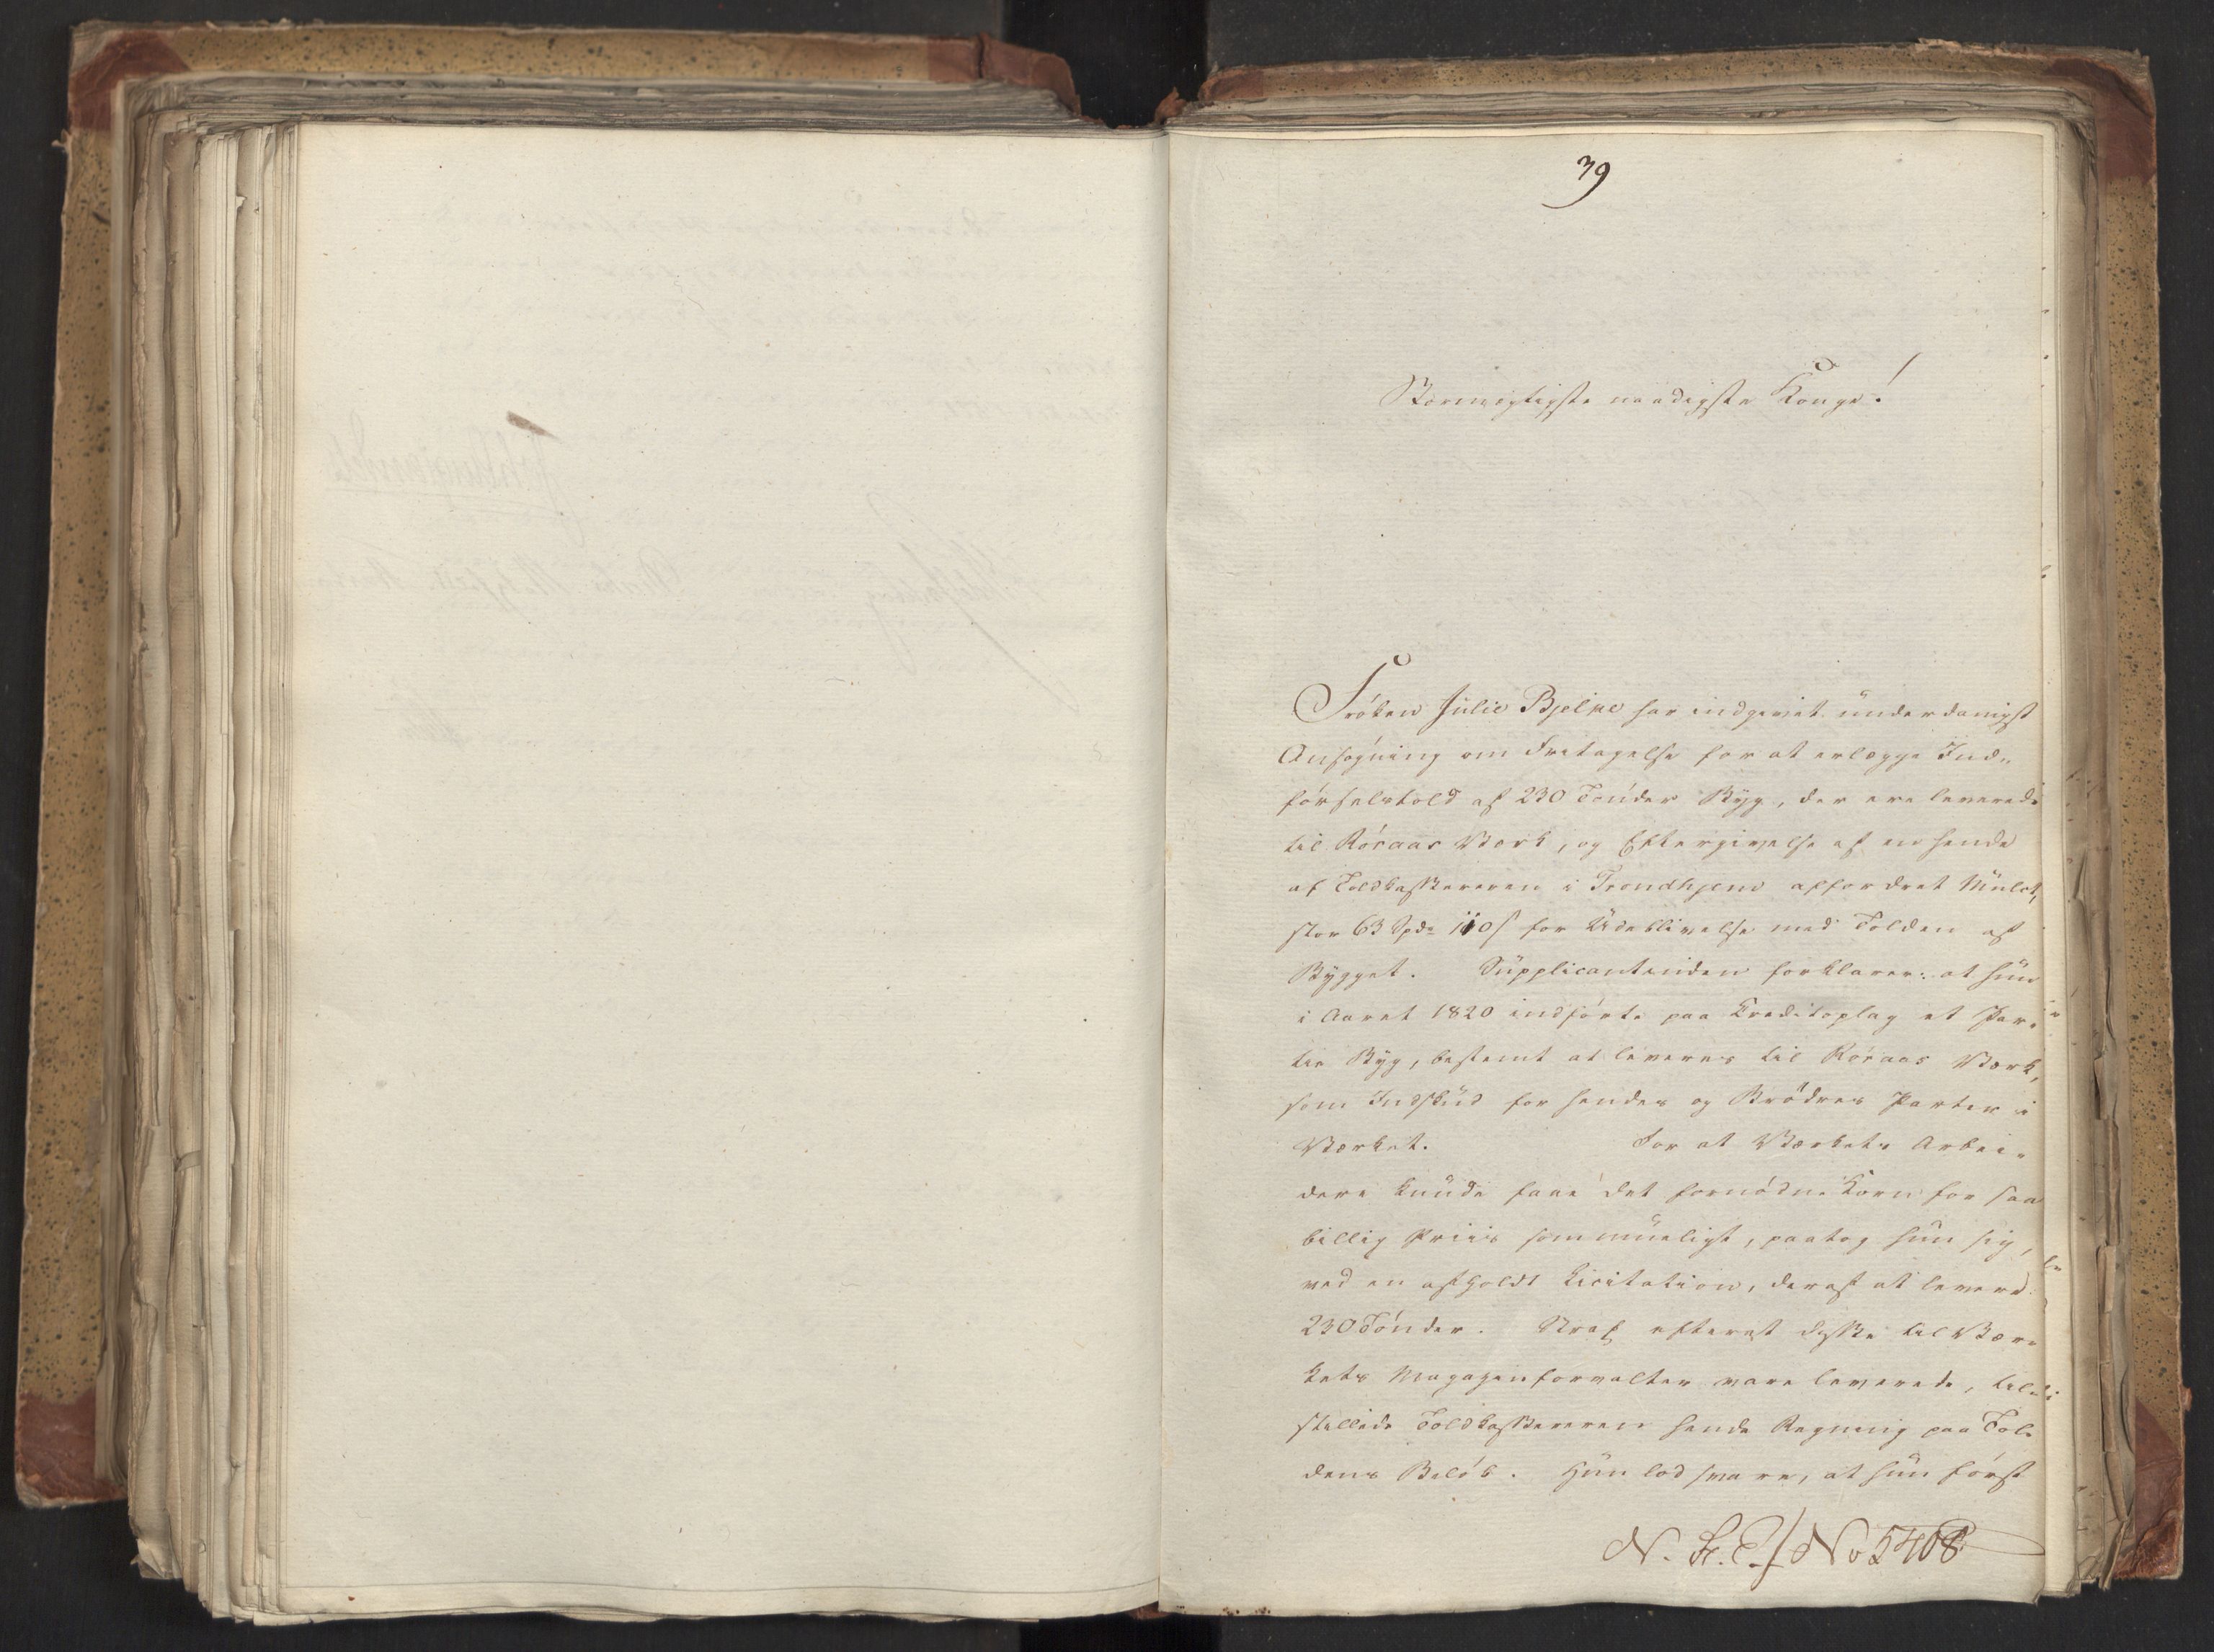 39
Stormægtigste naadigste Konge!
Frøken Julie Bjelke har indgivet underdanigst
Ansøgning om Fritagelse for at erlægge Ind-
førselstold af 230 Tønder Byg, der ere leverede
til Røraas Værk, og Eftergivelse af en hende
af Toldkassereren i Trondhjem affordret Mulct,
stor 63 Spd 110 s for Udeblivelse med Tolden af
Bygget. Supplicantinden forklarer: at hun
i Aaret 1820 indførte paa Creditoplag et Par-
tie Byg, bestemt at leveres til Røraas Værk,
som Indskud for hendes og Brødres Parter i
Værket. For at Værkets Arbei-
dere kunde faae det fornødne Korn for saa
billig Priis som mueligt, paatog hun sig,
ved en afholdt Licitation, deraf at levere
230 Tønder. Strax efterat disse til Vær-
kets Magazinforvalter vare leverede, til-
stillede Toldkassereren hende Regning paa Tol-
dens Beløb. Hun lod svare, at hun først
No 5408